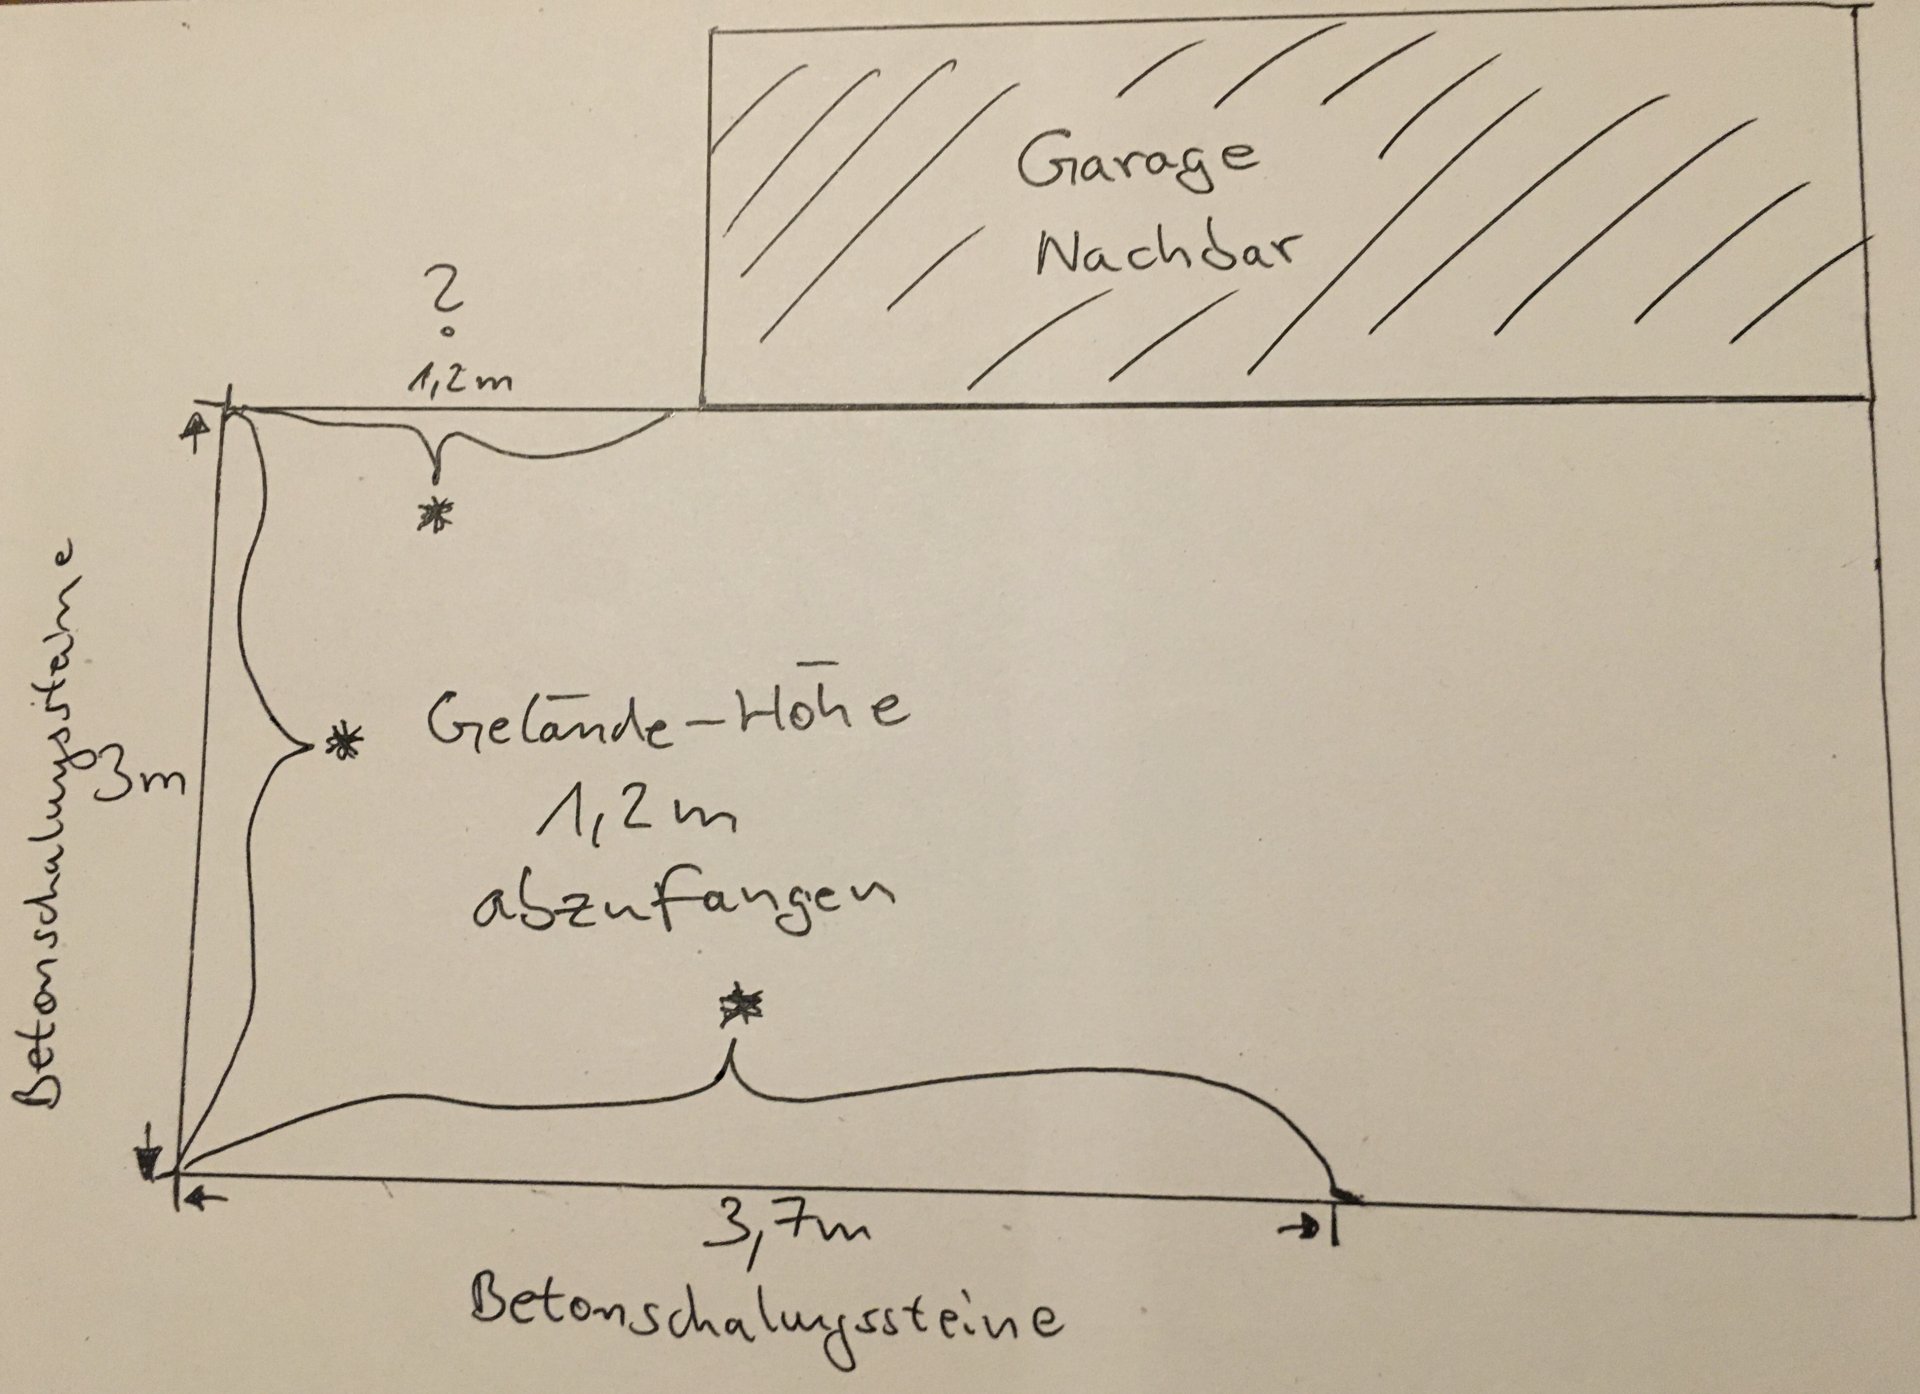 Garage
Nachbar
?
1,2m
*
Betonschalungssteine
3m
*
Gelände-Höhe
1,2m
abzufangen
*
3,7m
Betonschalungssteine